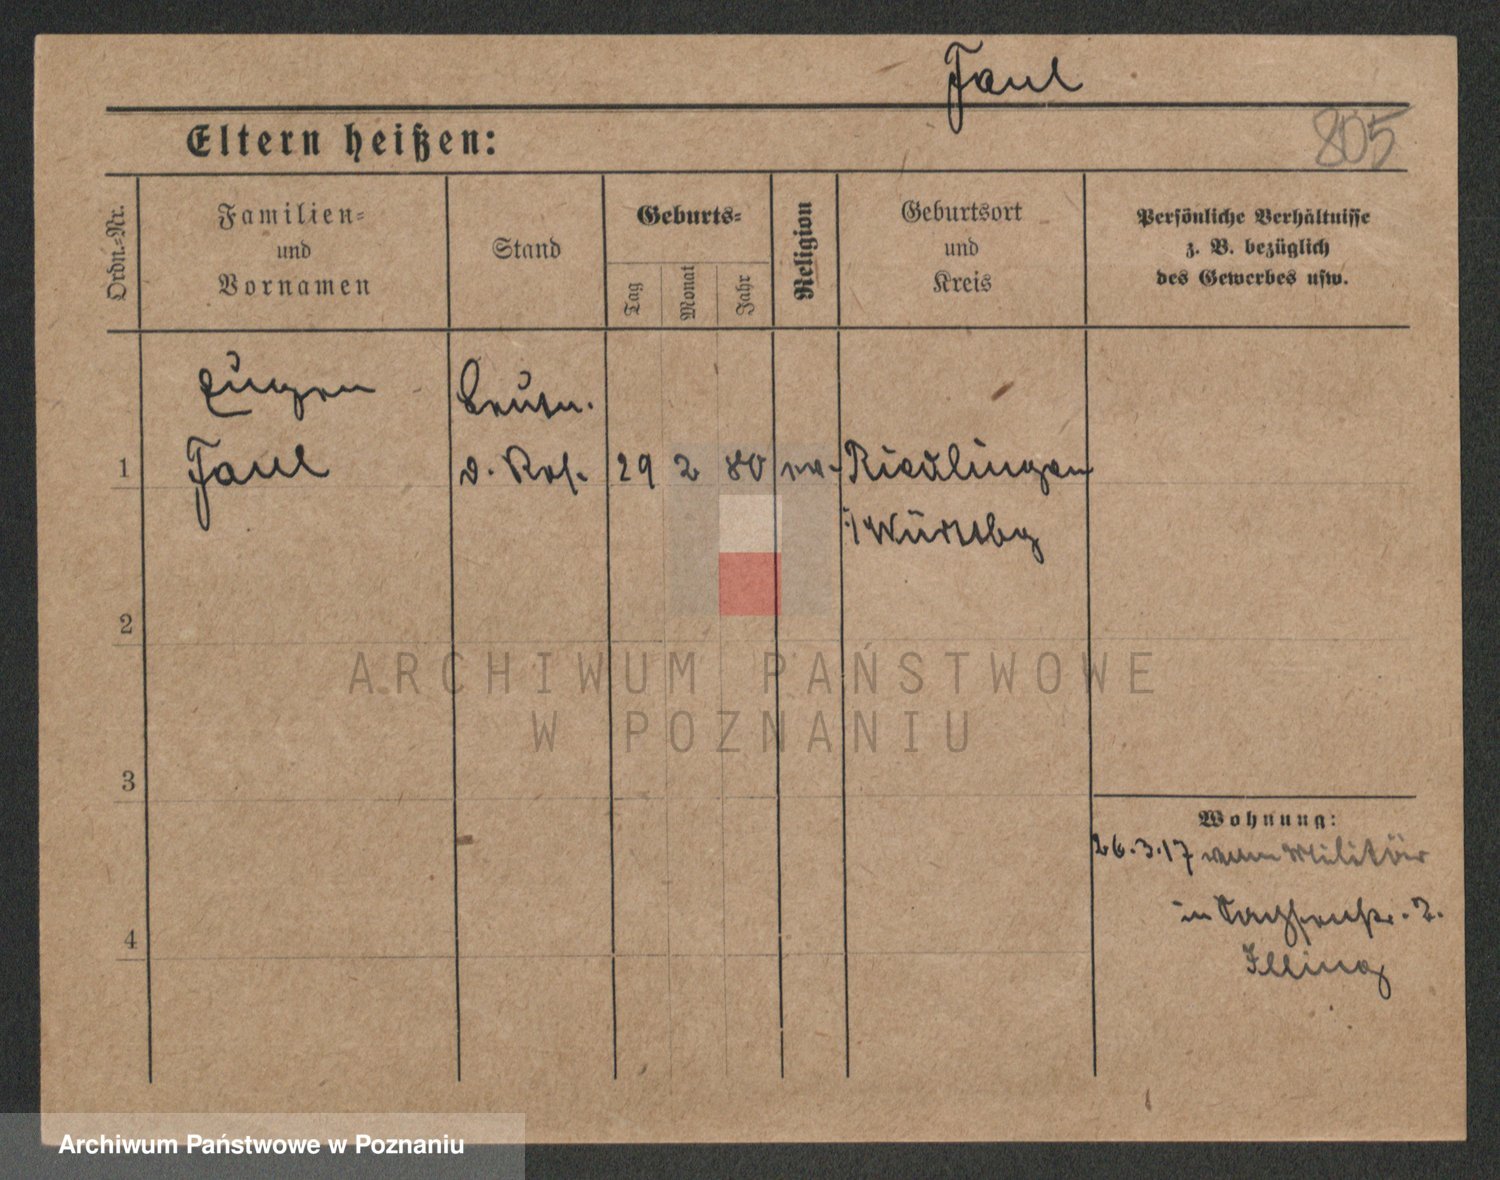 Faul
805
Eltern heißen:
Ordn.-Nr.
Familien-
und
Vornamen
Stand
Geburts-
Tag
Monat
Jahr
Religion
Geburtsort
und
Kreis
Persönliche Verhältnisse
z. B. bezüglich
des Gewerbes usw.
Eugen
Leutn.
1
Faul
d. Res.
29
2
80
Riedlingen
i/Württbg
2
ARCHIWUM PAŃSTWOWE
W POZNANIU
3
Wohnung:
26.3.17 vom Militär
in Sachsenstr. 2.
Illing
4
Archiwum Państwowe w Poznaniu